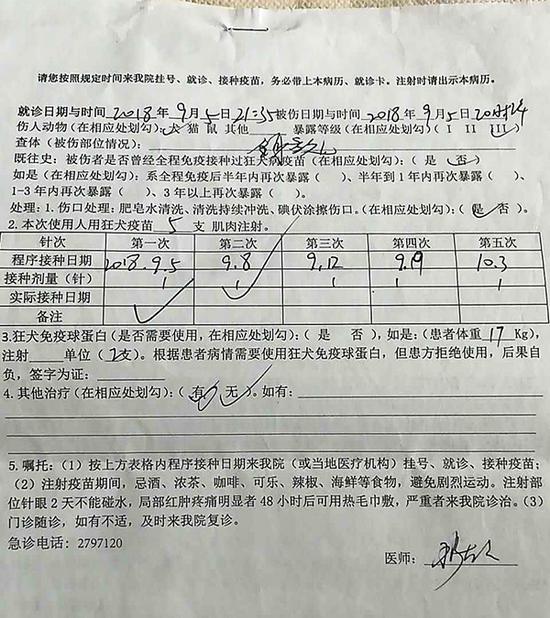 请您按照规定时间来我院挂号、就诊、接种疫苗，务必带上本病历、就诊卡。注射时请出示本病历。
就诊日期与时间 2018 年 9 月 5 日 21:35 被伤日期与时间 2018 年 9 月 5 日
伤人动物(在相应处划勾):犬 猫 鼠 其他____ 暴露等级(在相应处划勾)( I II III )
查体（被伤部位情况）:
既往史: 被伤者是否曾经全程免疫接种过狂犬病疫苗(在相应处划勾):( 是 否)
如是(在相应处划勾): 系全程免疫后半年内再次暴露（ ）、半年到1年内再次暴露（ ）、
1-3年内再次暴露（ ）、3年以上再次暴露（ ）。
处理: 1. 伤口处理: 肥皂水清洗、清洗持续冲洗、碘伏涂擦伤口。(在相应处划勾):( 是 否 )。
2. 本次使用人用狂犬疫苗 5 支 肌肉注射。
针次 第一次 第二次 第三次 第四次 第五次
程序接种日期 2018.9.5 9.8 9.12 9.19 10.3
接种剂量(针) 1 1 1 1 1
实际接种日期
备注
3.狂犬免疫球蛋白(是否需要使用,在相应处划勾):( 是 否 ),如是:(患者体重 17 Kg),
注射____单位( 2支)。根据患者病情需要使用狂犬免疫球蛋白，但患方拒绝使用，后果自
负，签字为证:________
4.其他治疗(在相应处划勾):( 有 无 )。如有:
5. 嘱托:（1）按上方表格内程序接种日期来我院（或当地医疗机构）挂号、就诊、接种疫苗;
（2）注射疫苗期间，忌酒、浓茶、咖啡、可乐、辣椒、海鲜等食物，避免剧烈运动。注射部
位针眼2天不能碰水，局部红肿疼痛明显者48小时后可用热毛巾敷，严重者来我院诊治。（3）
门诊随诊，如有不适，及时来我院复诊。
急诊电话: 2797120
医师: